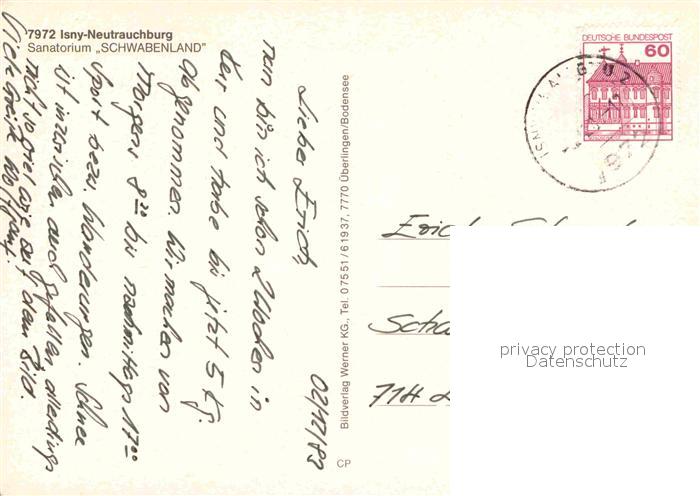 7972 Isny-Neutrauchburg
Sanatorium „SCHWABENLAND"
02/12/83
Lieber Erich,
nun bin ich schon 2 Wochen in
der und habe bis jetzt 5 kg
abgenommen. Wir machen von
Morgens 8 bis nachmittags 17⁰⁰
Sport bzw. Wanderungen. Schnee
ist inzwischen auch gefallen, allerdings
nicht so viel wie auf dem Bild.
Viele Grüße
Bildverlag Werner KG., Tel. 07551/61937, 7770 Überlingen/Bodensee
CP
DEUTSCHE BUNDESPOST
60
ISNY
Erich
privacy protection
Datenschutz